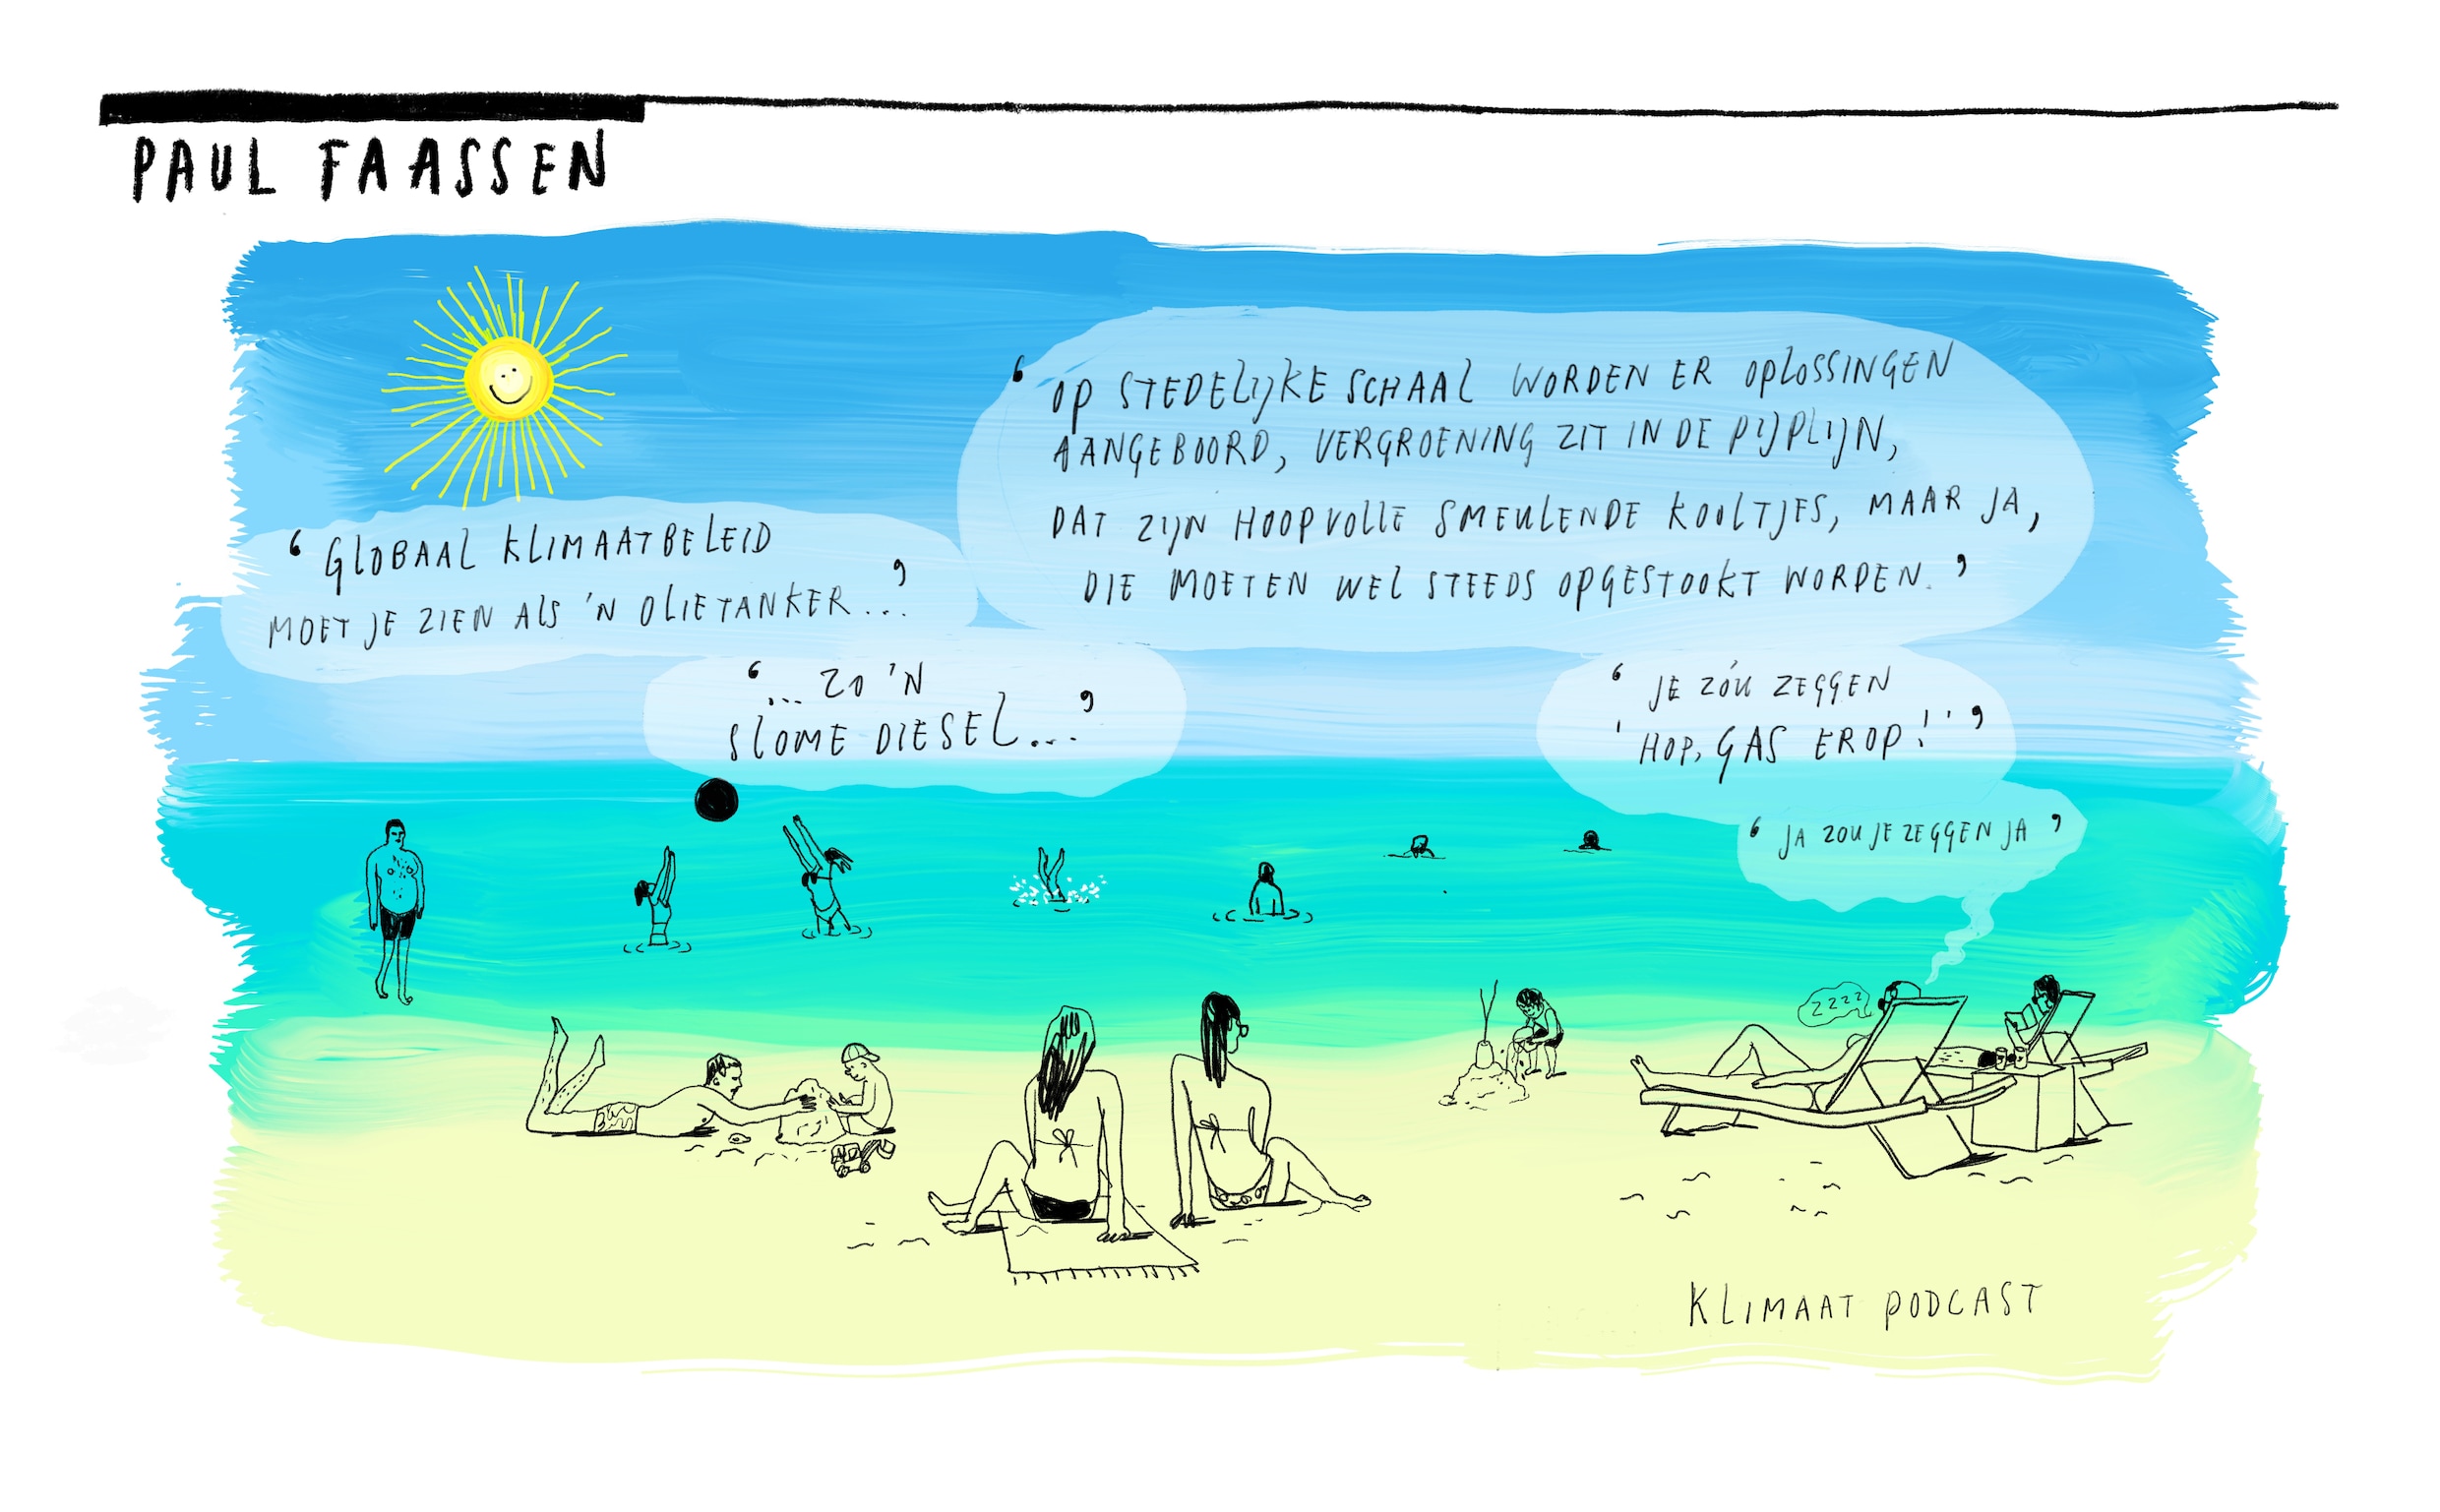 PAUL FAASSEN
‘GLOBAAL KLIMAATBELEID
MOET JE ZIEN ALS 'N OLIETANKER...’
‘... ZO 'N
SLOME DIESEL...’
‘OP STEDELIJKE SCHAAL WORDEN ER OPLOSSINGEN
AANGEBOORD, VERGROENING ZIT IN DE PIJPLIJN,
DAT ZIJN HOOPVOLLE SMEULENDE KOOLTJES, MAAR JA,
DIE MOETEN WEL STEEDS OPGESTOOKT WORDEN.’
‘JE ZÓU ZEGGEN
'HOP, GAS EROP!'’
‘JA ZOU JE ZEGGEN JA’
ZZZZ
KLIMAAT PODCAST